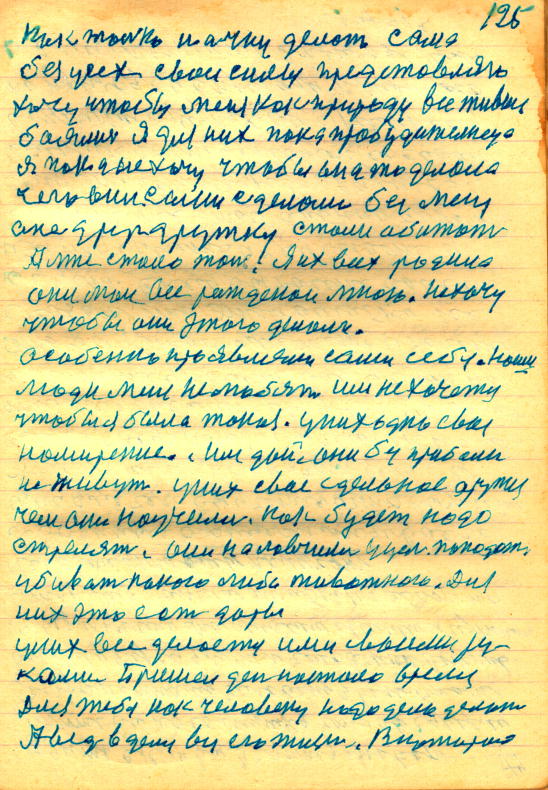 125
Как только начну делать сама
без усех свои силы представлять
хочу чтобы меня как природу все живые
боялися я для них пока
я пока не хочу чтобы она то делала
чего они сами сделали без меня
они друг дружку стали
А мне стало жаль. Я их всех родила
они мои все рождены мною. Не хочу
чтобы они этого делали.
особенно проявляли сами себя. наши
люди меня не любят им не хочется
чтобы я была такая. у них одно свое
намирение. им дай они бы прибыли
не живут. у них свое сделаное оружия
чем они научили. как будет надо
стрелят. они наловчили у цел. попадат.
убиват какого либо животного. Для
них это ест дары
у них все делается ими своими ру-
ками Пришел ден настало время
для тебя как человеку надо дела делат
А вед в деле вся жизн.